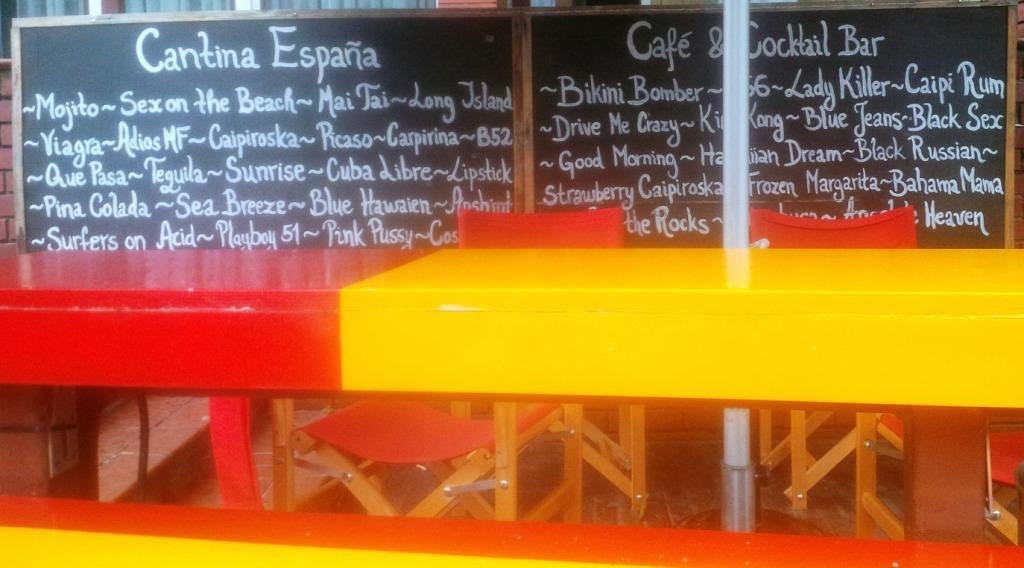 Cantina España
~Mojito~Sex on the Beach~Mai Tai~Long Island
~Viagra~Adios MF~Caipiroska~Picaso~Carpirina~B52
~Que Pasa~Tequila~Sunrise~Cuba Libre~Lipstick
~Pina Colada~Sea Breeze~Blue Hawaien~
~Surfers on Acid~Playboy 51~Pink Pussy~
Café & Cocktail Bar
~Bikini Bomber~ ~Lady Killer~Caipi Rum
~Drive Me Crazy~ Kong~Blue Jeans~Black Sex
~Good Morning~ Dream~Black Russian~
Strawberry Caipiroska Frozen Margarita~Bahama Mama
the Rocks~ Heaven